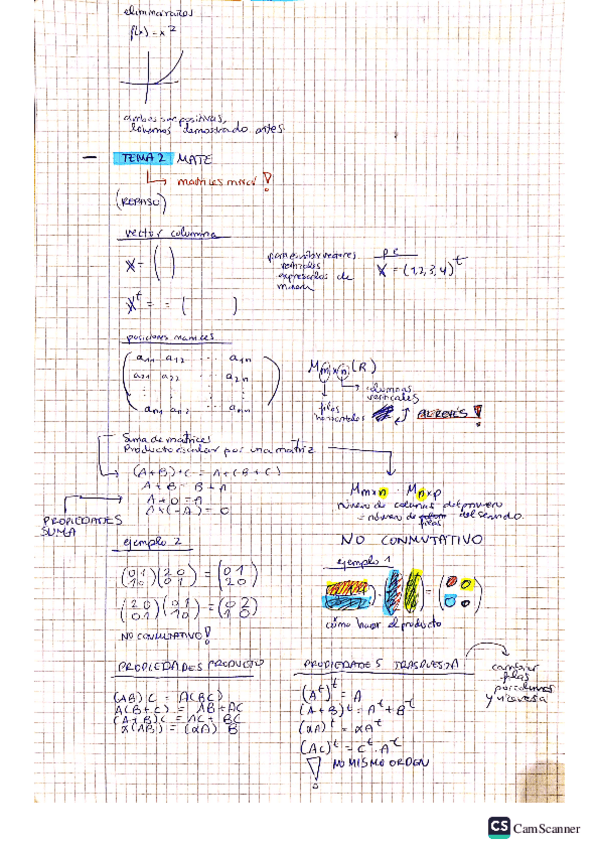 f(x) = x²
ambas son positivas,
lo hemos demostrado antes
— TEMA 2 MATE
matrices mxn !
(REPASO)
vector columna
X = ( )
Xᵗ = = ( )
para escribir vectores
verticales
expresarlos de
p.e.
X = (1,2,3,4)ᵗ
posiciones matrices
a11 a12 ... a1n
a21 a22 ... a2n
an1 an2 ... ann
Mmxn (R)
columnas
verticales
filas
horizontales
AL REVÉS !
Suma de matrices
Producto escalar por una matriz
(A+B)+C = A+(B+C)
A+B = B+A
A+0 = A
A+(-A) = 0
PROPIEDADES
SUMA
Mmxn · Mnxp
número de columnas del primero
= número de filas del segundo
NO CONMUTATIVO
ejemplo 2
(0 1
1 0) (2 0
0 1) = (0 1
2 0)
(2 0
0 1) (0 1
1 0) = (0 2
1 0)
NO CONMUTATIVO!
ejemplo 1
cómo hacer el producto
PROPIEDADES PRODUCTO
(AB)C = A(BC)
A(B+C) = AB+AC
(A+B)C = AC+BC
α(AB) = (αA) B
PROPIEDADES TRASPUESTA
cambiar
filas
por columnas
y viceversa
(Aᵗ)ᵗ = A
(A+B)ᵗ = Aᵗ+Bᵗ
(αA)ᵗ = αAᵗ
(AC)ᵗ = Cᵗ·Aᵗ
! NO MISMO ORDEN
CS CamScanner